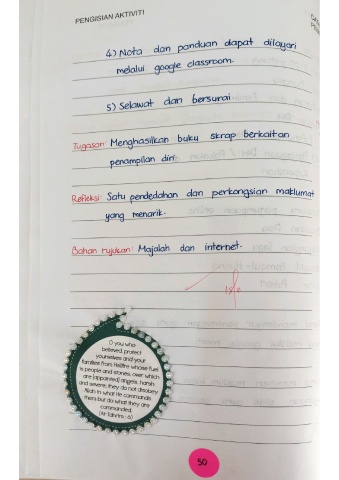 PENGISIAN AKTIVITI
4) Nota dan panduan dapat dilayari
melalui google classroom.
5) Selawat dan bersurai
Tugasan: Menghasilkan buku skrap berkaitan
penampilan diri.
Refleksi: Satu pendedahan dan perkongsian maklumat
yang menarik.
Bahan rujukan: Majalah dan internet.
O you who
believed, protect
yourselves and your
families from Hellfire whose fuel
is people and stones, over which
are (appointed) angels, harsh
and severe; they do not disobey
Allah in what He commands
them but do what they are
commanded.
(At-Tahrim : 6)
50